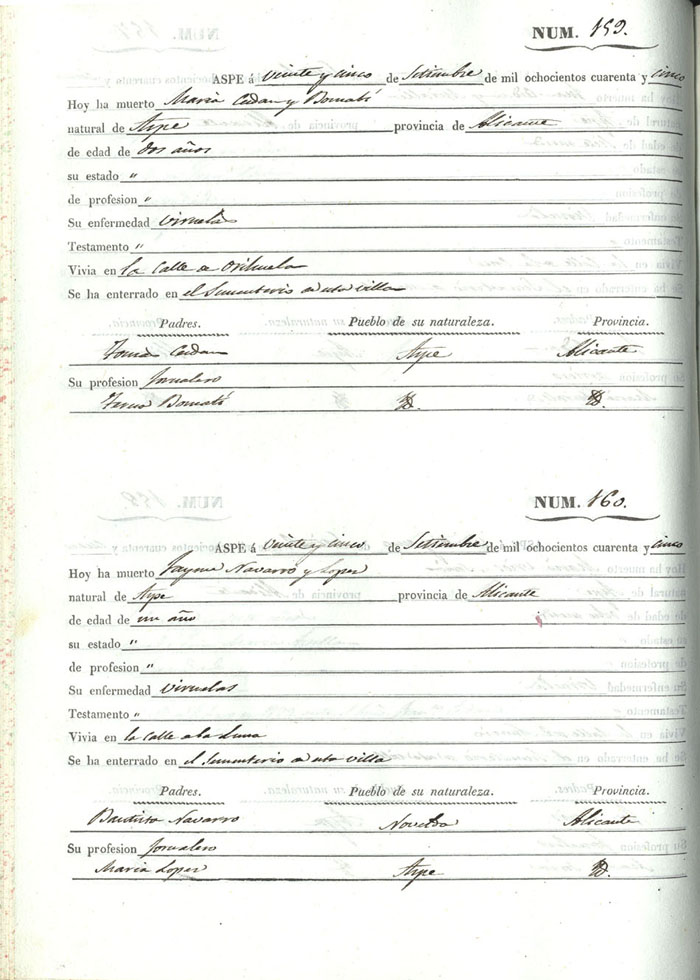 NUM. 159.
ASPE á veinte y cinco de Setiembre de mil ochocientos cuarenta y cinco
Hoy ha muerto Maria Cerdan y Bomatí
natural de Aspe provincia de Alicante
de edad de dos años
su estado "
de profesion "
Su enfermedad viruela
Testamento "
Vivia en la Calle de Orihuela
Se ha enterrado en el Sementerio de esta villa
Padres. Pueblo de su naturaleza. Provincia.
Tomas Cerdan Aspe Alicante
Su profesion Jornalero
Bomatí Id. Id.
NUM. 160.
ASPE á veinte y cinco de Setiembre de mil ochocientos cuarenta y cinco
Hoy ha muerto Jayme Navarro y Lopez
natural de Aspe provincia de Alicante
de edad de un año
su estado "
de profesion "
Su enfermedad viruelas
Testamento "
Vivia en la Calle de la Luna
Se ha enterrado en el Sementerio de esta villa
Padres. Pueblo de su naturaleza. Provincia.
Bautista Navarro Novelda Alicante
Su profesion Jornalero
Maria Lopez Aspe Id.